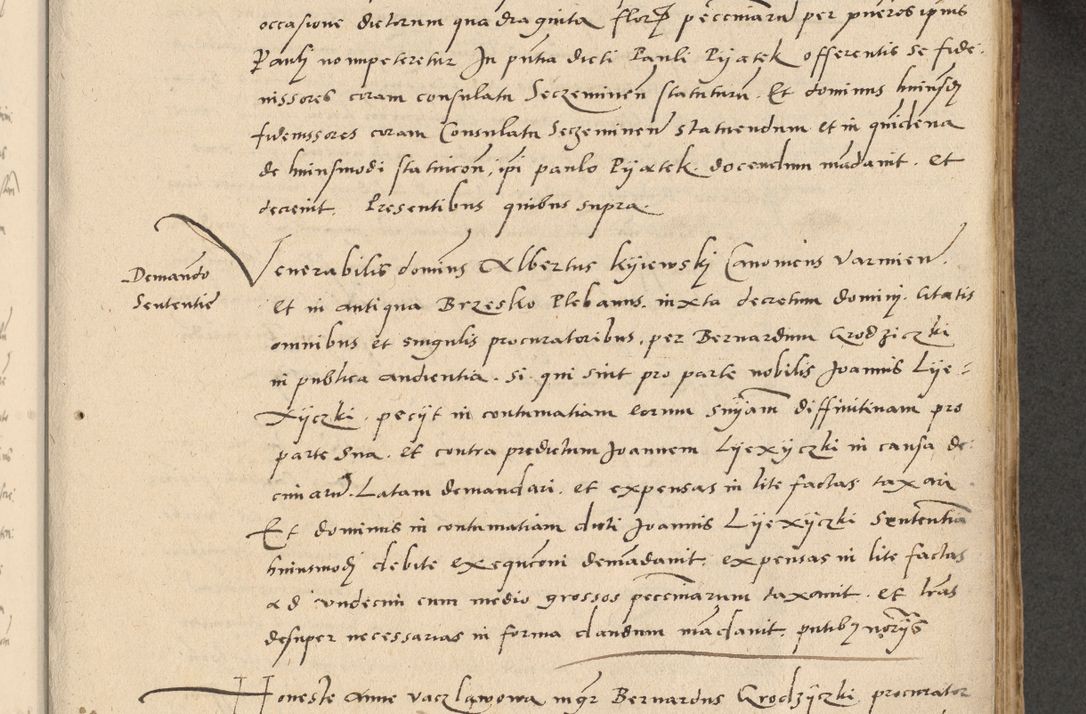 occasione dictorum quadraginta flor pecuniaru per pueros ipius
Pauli no impeteretur In pntia dicti Pauli Pijatek offerentis se fide
nissores coram consulatu Seczeminen statuturu. Et dominus huiusq
fideiussores coram Consulatu Seczeminen statuendum et in quidena
de huiusmodi statuicon, ipi paulo Pijatek. docendum madauit. et
decreuit. Presentibus quibus supra.
Demando
Sententie
Venerabilis dominus Albertus Kijewskj Canonicus Varmien.
et in antiqua Brzesko Plebanus. iuxta decretum dominj. Citatis
omnibus et singulis procuratoribus, per Bernardum Grodziczki
in publica audientia. Si qui sint pro parte nobilis Joannis Lije=
xijczki. pecijt in contumatiam eorum sniam diffinitiuam pro
parte sua. et contra predictum Joannem Lijexijczki in causa de
cimaru. Latam demandari. et expensas in lite factas taxari
Et dominus in contumatiam dicti Joannis Lijexijczki sententia
huiusmodj debite exequconi demadauit, expensas in lite factas
ad vndecim cum medio grossos pecuniarum taxauit. et lras
desuper necessarias in forma dandum madauit. pntibz norijs
Honeste Anne vaczlawowa mgr Bernardus Grodzijczki procurator